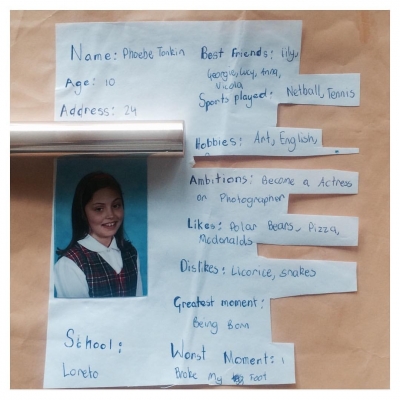 Name: Phoebe Tonkin
Age: 10
Address: 24
School:
Loreto
Best Friends: Lily,
Georgie, Lucy, Anna,
Nicola
Sports played: Netball, Tennis
Hobbies: Art, English,
Ambitions: Become a Actress
or Photographer
Likes: Polar Bears, Pizza,
McDonalds
Dislikes: Licorice, snakes
Greatest moment:
Being Born
Worst Moment: I
Broke My Foot